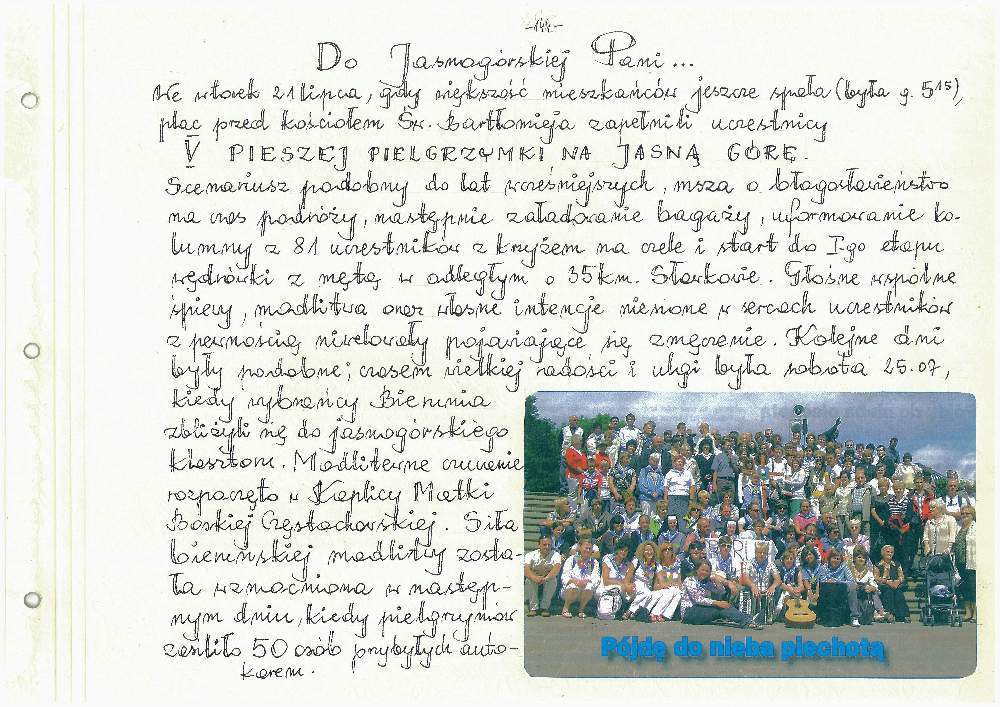 -144-
Do Jasnogórskiej Pani...
We wtorek 21 lipca, gdy większość mieszkańców jeszcze spała (była g. 5¹⁵),
plac przed kościołem Św. Bartłomieja zapełnili uczestnicy
V PIESZEJ PIELGRZYMKI NA JASNĄ GÓRĘ.
Scenariusz podobny do lat wcześniejszych, msza o błogosławieństwo
na czas podróży, następnie załadowanie bagaży, uformowanie ko-
lumny z 81 uczestników z krzyżem na czele i start do I-go etapu
wędrówki z metą w odległym o 35km. Starkowie. Głośne wspólne
śpiewy, modlitwa oraz własne intencje niesione w sercach uczestników
z pewnością niwelowały pojawiające się zmęczenie. Kolejne dni
były podobne; czasem wielkiej radości i ulgi była sobota 25.07,
kiedy wybrańcy Bierunia
zbliżyli się do jasnogórskiego
klasztoru. Modlitewne czuwanie
rozpoczęto w Kaplicy Matki
Boskiej Częstochowskiej. Siła
bieruńskiej modlitwy zosta-
ła wzmocniona w następ-
nym dniu, kiedy pielgrzymów
zasiliło 50 osób przybyłych auto-
karem.
Pójdę do nieba piechotą